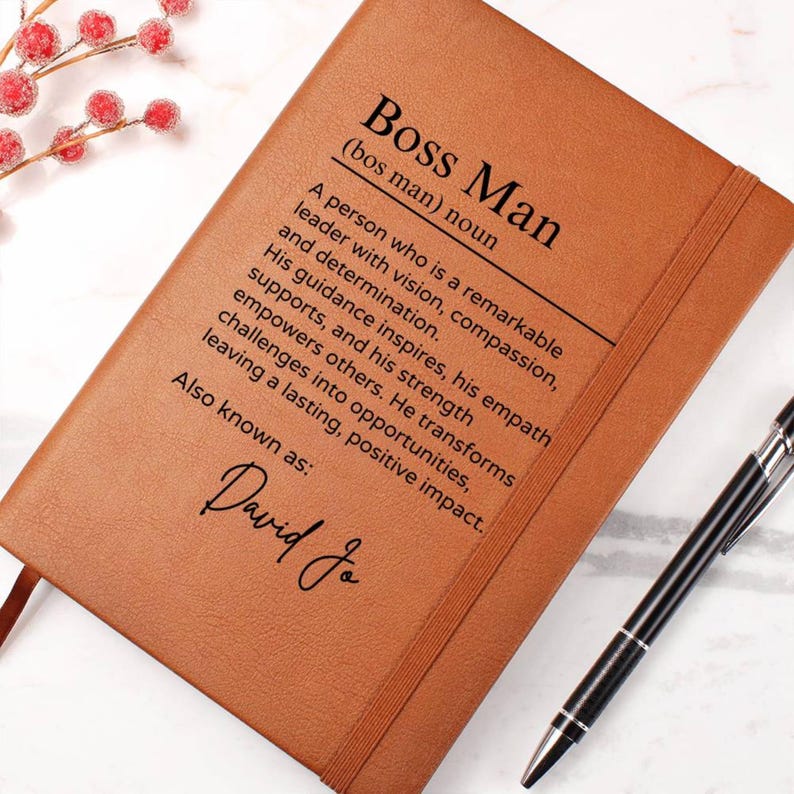 Boss Man
(bos man) noun
A person who is a remarkable
leader with vision, compassion,
and determination.
His guidance inspires, his empath
supports, and his strength
empowers others. He transforms
challenges into opportunities,
leaving a lasting, positive impact.
Also known as:
David Jo